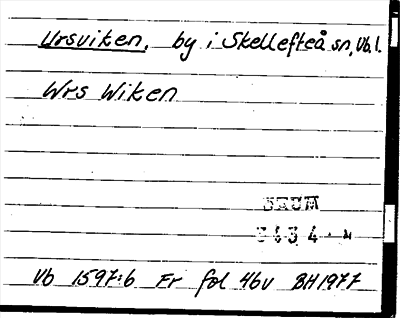 Ursviken, by i Skellefteå sn, Vb. l.
Wrs Wiken
DAUM
3434
Vb 1597:6 Fr fol 46v BH1977